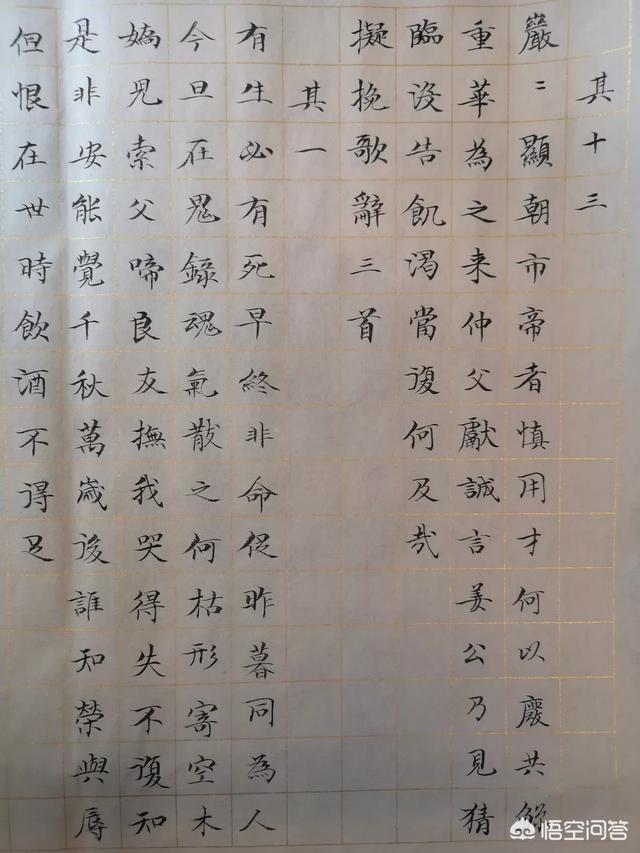 其十三
巖〻顯朝市帝者慎用才何以廢共鯀
重華為之来仲父獻誠言姜公乃見猜
臨没告飢渴當復何及哉
擬挽歌辭三首
其一
有生必有死早終非命促昨暮同為人
今旦在鬼錄魂氣散之何枯形寄空木
嬌兒索父啼良友撫我哭得失不復知
是非安能覺千秋萬歲後誰知榮與辱
但恨在世時飲酒不得足
悟空问答